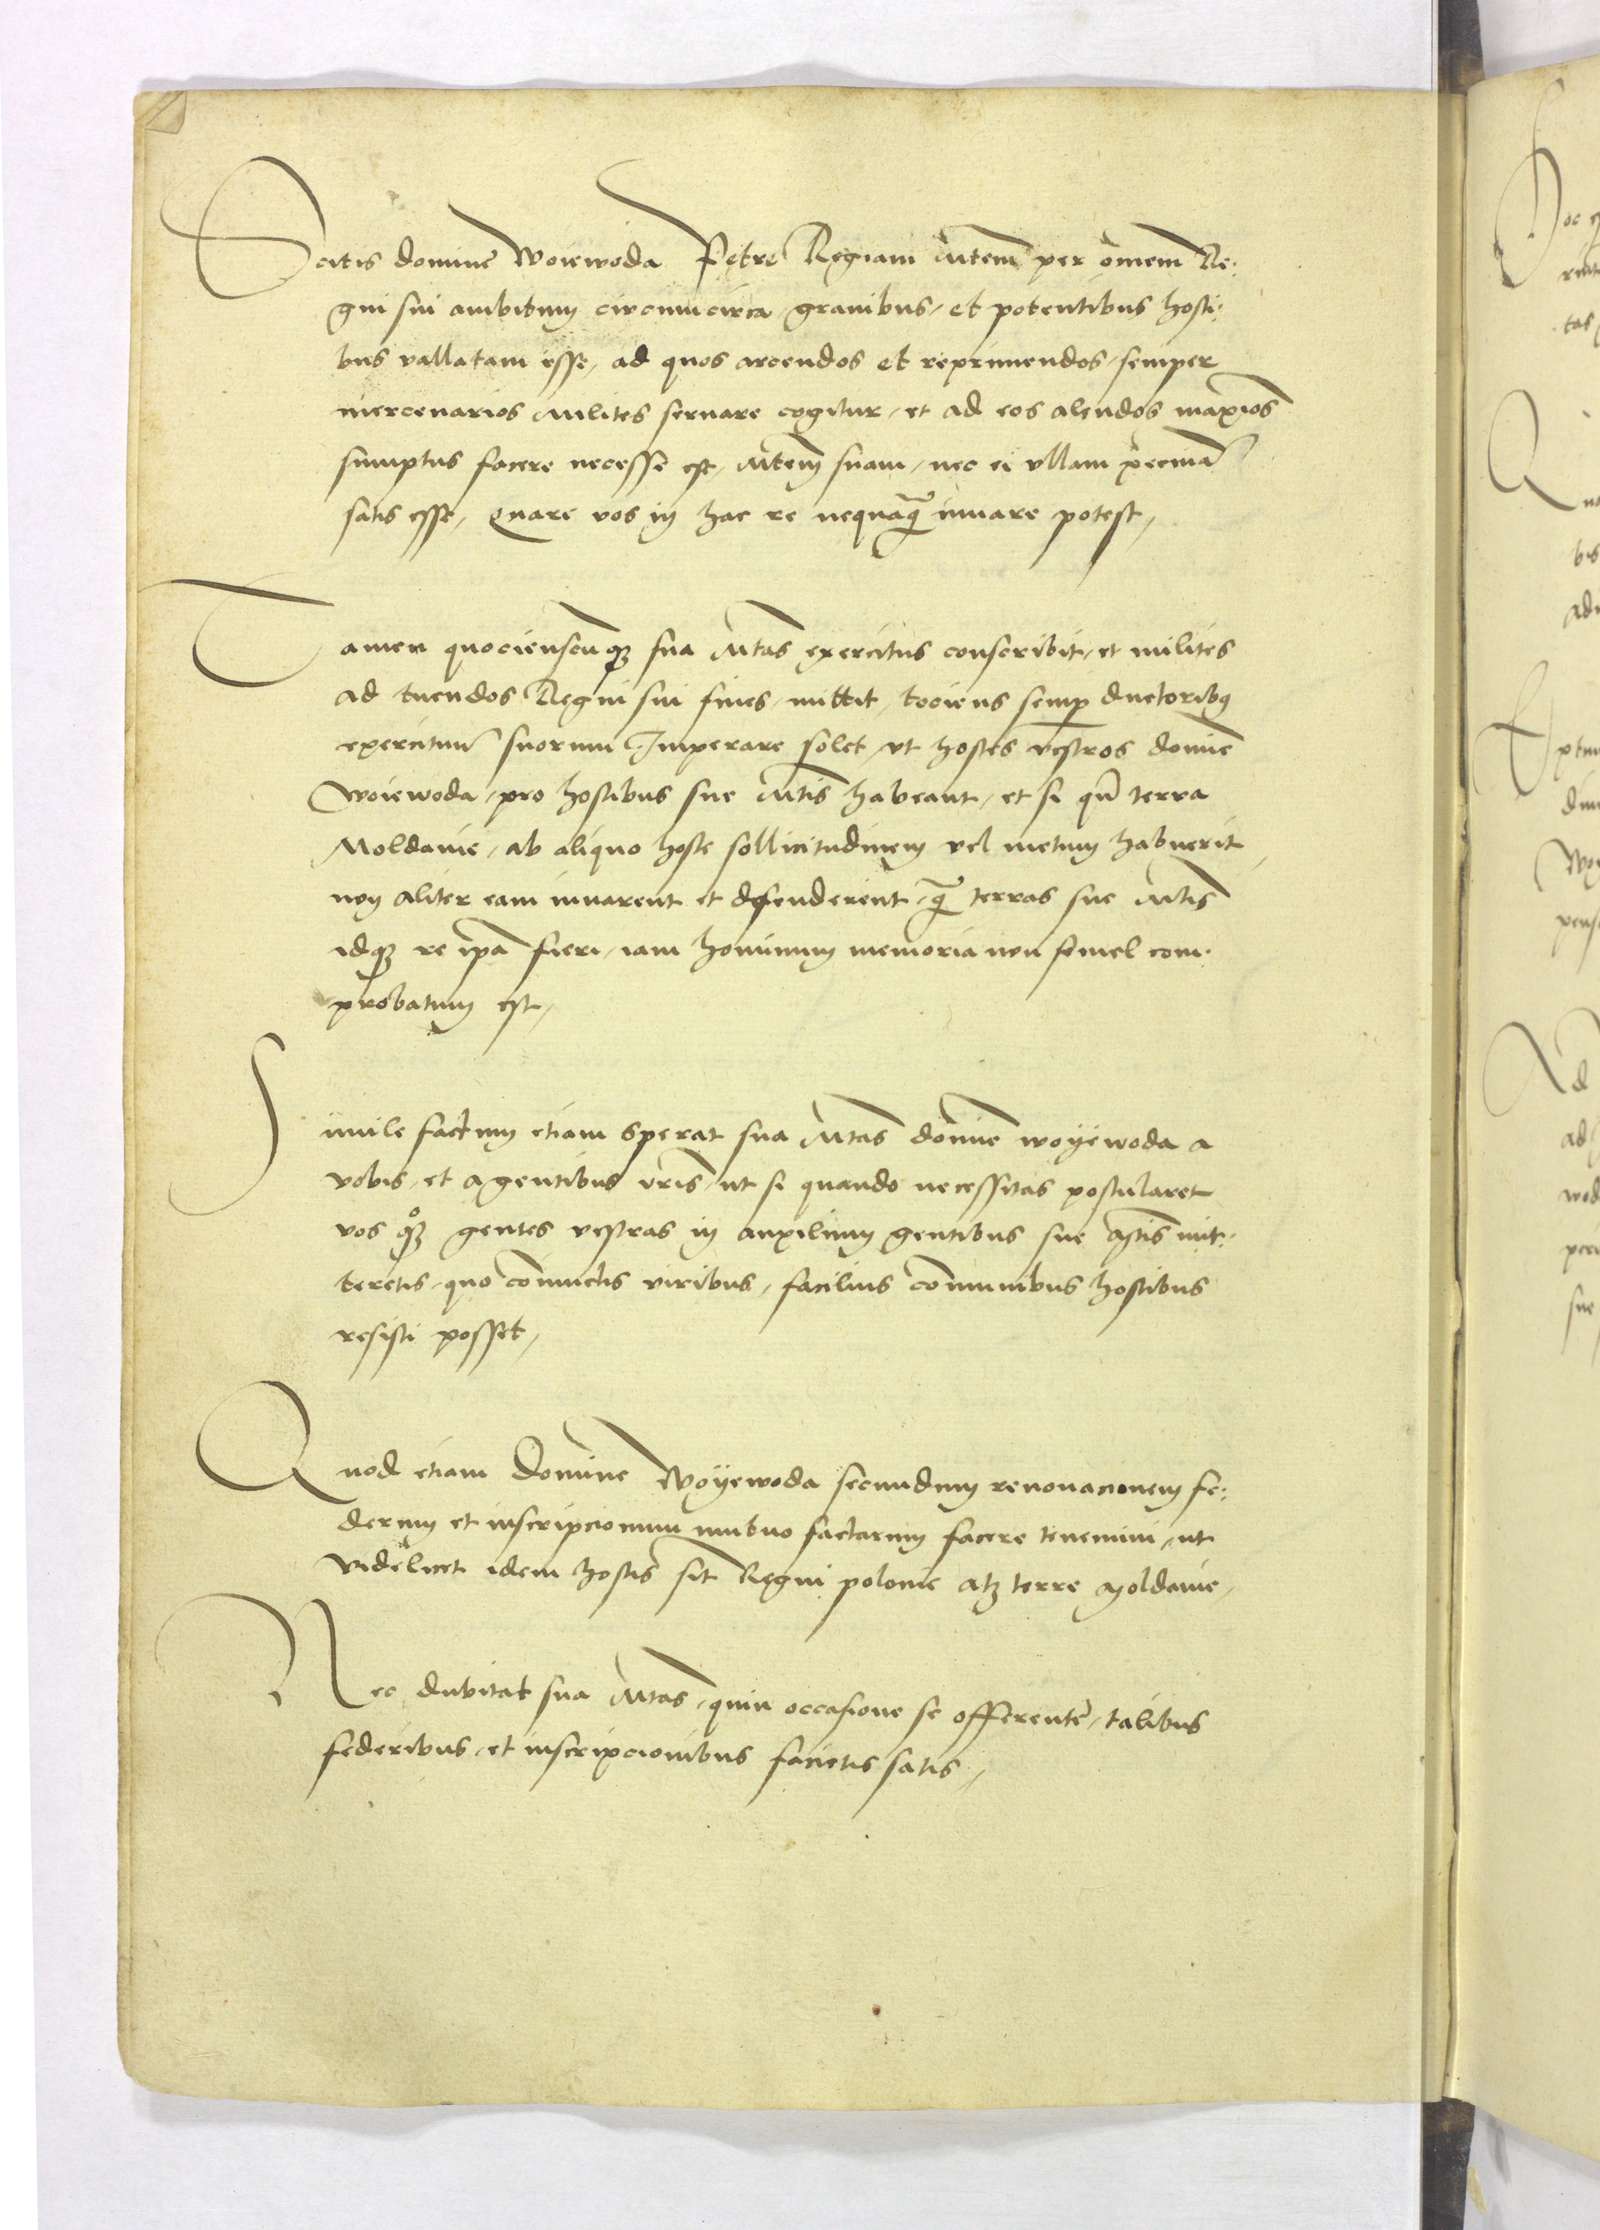 Scitis domine Woiewoda Petre Regiam Mtem per omnem Re:
gni sui ambitum circumcirca, gravibus, et potentibus hosti:
bus vallatam esse, ad quos arcendos et reprimendos, semper
mercenarios Milites servare cogitur, et ad eos alendos maxios
sumptus facere necesse est, Mtem suam, nec ei ullam pecuniā
satis esse, Quare vos in hac re nequaqȝ iuvare potest,
Tamen quocienscunqȝ sua Mtas exercitus conscribit, et milites
ad tuendos Regni sui fines, mittit, tociens semp ductoribȝ
exercituū suorum Imperare solet, vt hostes vestros domine
Woiewoda, pro hostibus sue Mtis habeant, et si qn̄ terra
Moldavie, ab aliquo hoste sollicitudinem vel metum habuerit
non aliter eam iuvarent et defenderent, qȝ terras sue Mtis
idqȝ re ipa fieri, iam hominum memoria non semel com:
probatum est,
Simile factum etiam sperat sua Mtas domine woyewoda a
vobis, et a gentibus vris, ut si quando necessitas postularet
vos qȝ gentes vestras in auxilium gentibus sue Mtis mit:
teretis, quo coniunctis viribus, facilius communibus hostibus
resisti posset,
Quod etiam Domine Woyewoda secundum renovacionem fe:
derum et inscripcionum mutuo factarum facere tenemini, ut
videlicet idem hostis sit Regni polonie atȝ terre Moldavie,
Nec dubitat sua Mtas, quin occasione se offerente, talibus
federibus, et inscripcionibus facietis satis,